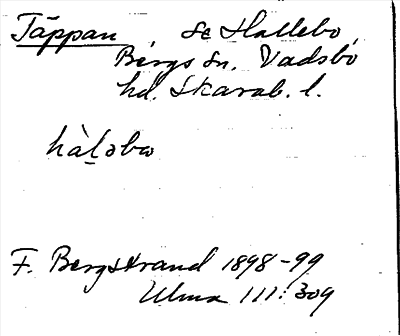 Täppan, se Hallebo,
Bergs sn. Vadsbo
hd. Skarab. l.
hàḻəbω
F. Bergstrand 1898-99
Ulma 111:309